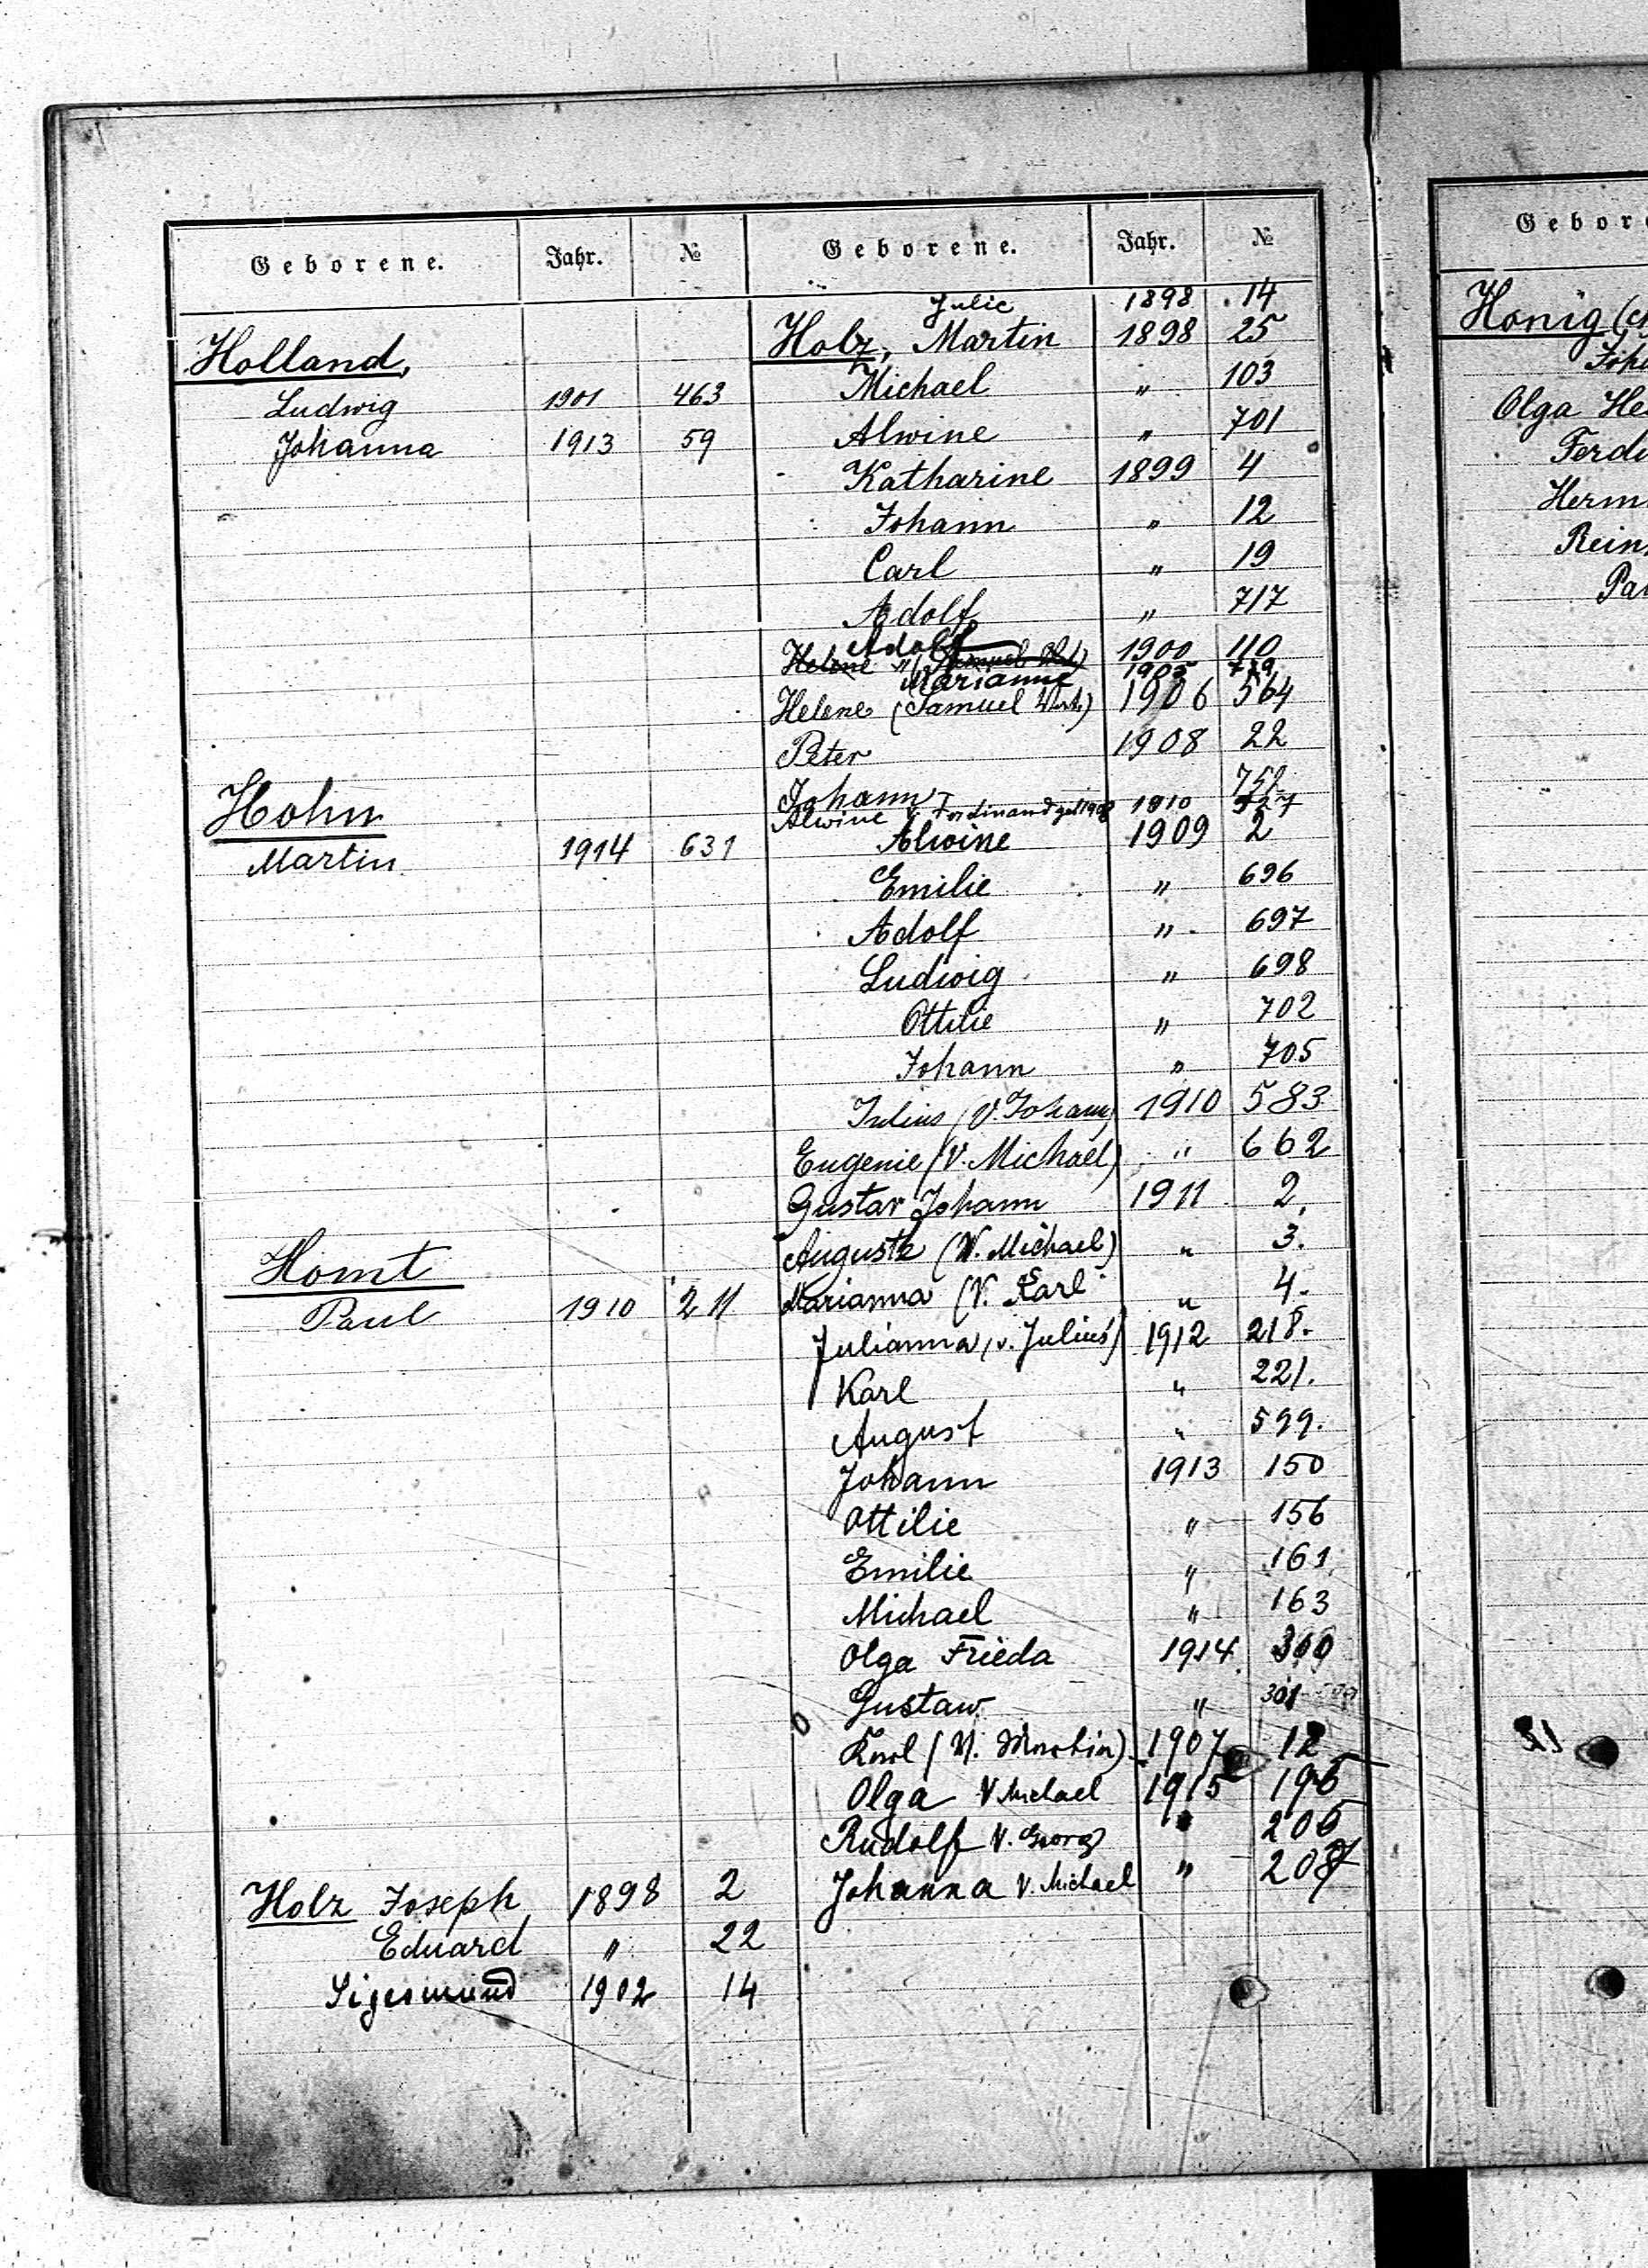 Geborene. Jahr. №
Holland,
Ludwig 1901 463
Johanna 1913 59
Hohn
Martin 1914 631
Homt
Paul 1910 211
Holz Joseph 1898 2
Eduard " 22
Sigesmund 1902 14
Geborene. Jahr. №
Julie 1898 14
Holz, Martin 1898 25
Michael " 103
Alwine " 701
Katharine 1899 4
Johann " 12
Carl " 19
Adolf " 717
Adolf 1900 110
Helene (Samuel 1905
Marianne
Helene (Samuel 1906 564
Peter 1908 22
Johann 752
Alwine V. Ferdinand 1910 527
Alwine 1909 2
Emilie " 696
Adolf " 697
Ludwig " 698
Ottilie " 702
Johann " 705
Julius (V. Johann) 1910 583
Eugenie (V. Michael) " 662
Gustav Johann 1911 2.
Auguste (V. Michael) " 3.
Marianna (V. Karl " 4.
Julianna, (v. Julius) 1912 218.
Karl " 221.
August " 599.
Johann 1913 150
Ottilie " 156
Emilie " 161
Michael " 163
Olga Frieda 1914 300
Gustaw " 301
Karl (V. Martin) 1907 12
Olga V Michael 1915 196
Rudolf V. Georg " 206
Johanna V. Michael " 207
Gebor
Honig
Olga He
Ferdi
Herm
Rein
Pa